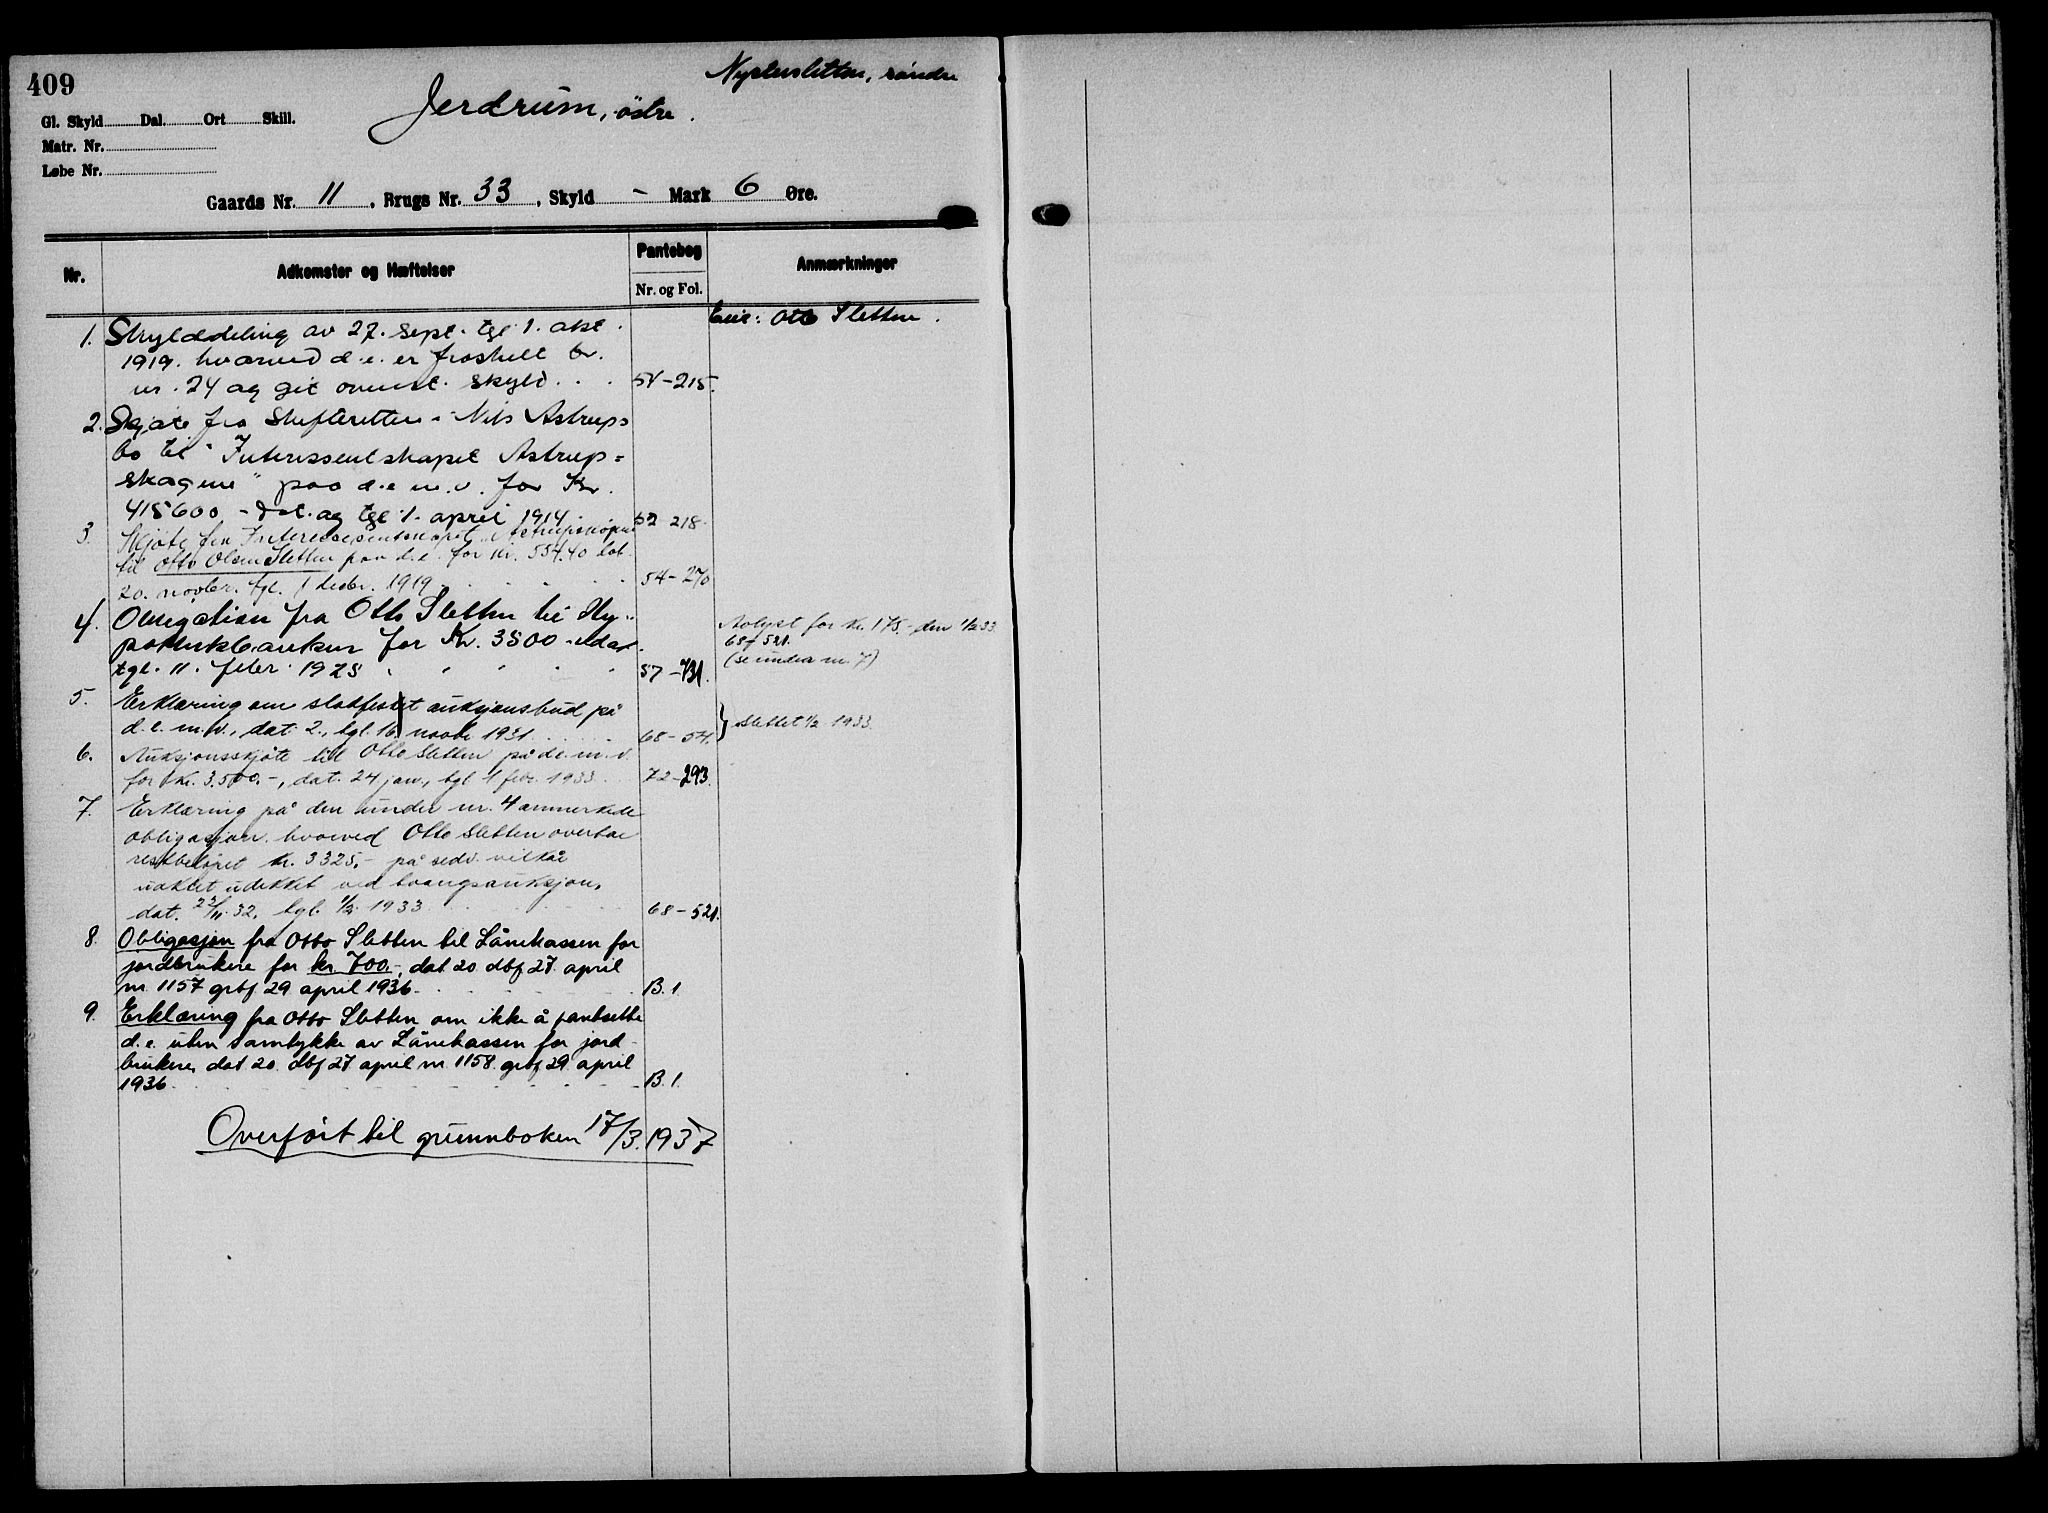 409
Nysterslettm, söndre
Jerdrum, östre.
Gl. Skyld Dal. Ort Skill.
Matr. Nr.
Løbe Nr.
Gaards Nr. 11, Brugs Nr. 33, Skyld - Mark 6 Øre.
Nr. Adkomster og Hæftelser Pantebog Nr. og Fol. Anmærkninger
Eier: Otto Sletten.
1. Skylddeling av 27. sept. tgl. 1. okt.
1919. hvorved d.e. er fraskilt br.
nr. 24 og git ovennt. skyld . . . 54-215.
2. Skjøte fra Skifteretten i Nils Astrups
bo til "Interessentskapet Astrup=
skogene" paa d.e. m.v. for Kr.
415600 - dat. og tgl. 1. april 1914. 52-218.
3. Skjøte fra Interessentskapet "Astrupskogene
til Otto Olsen Sletten paa d.e. for kr. 554.40 dat.
20. novbr. tgl. 1 decbr. 1919 . . . . 54-270
4. Obligation fra Otto Sletten til Hy-
pothekbanken for Kr. 3500 - udat.
tgl. 11. febr. 1925 . . . . . 57-731.
Avlyst for kr. 175,- den 1/2 33.
68f 521.
(se under nr. 7)
5. Erklæring om stadfestet auksjonsbud på
d.e. m.v., dat. 2., tgl. 16. novbr. 1931 . . . . 68-54.
} Slettet 1/2 1933.
6. Auksjonsskjøte til Otto Sletten på d.e. m.v.
for kr. 3.500.-, dat. 24 jan., tgl. 1 febr. 1933. . . 72-293.
7. Erklæring på den under nr. 4 anmerkede
obligasjon hvorved Otto Sletten overtar
restbeløpet kr. 3325,- på sedv. vilkår
uaktet udekket ved tvangsauksjon,
dat. 23/11.32, tgl. 1/2 1933. . . . . 68-521.
8. Obligasjon fra Otto Sletten til Lånekassen for
jordbrukere for kr. 700.-, dat 20. dbf 27. april
nr. 1157 grbf 29 april 1936. . . . . B. 1.
9. Erklæring fra Otto Sletten om ikke å pantsette
d.e. uten samtykke av Lånekassen for jord-
brukere, dat 20. dbf 27 april nr. 1158. grbf 29. april
1936. . . . . . . . . B. 1.
Overført til grunnboken 17/3. 1937